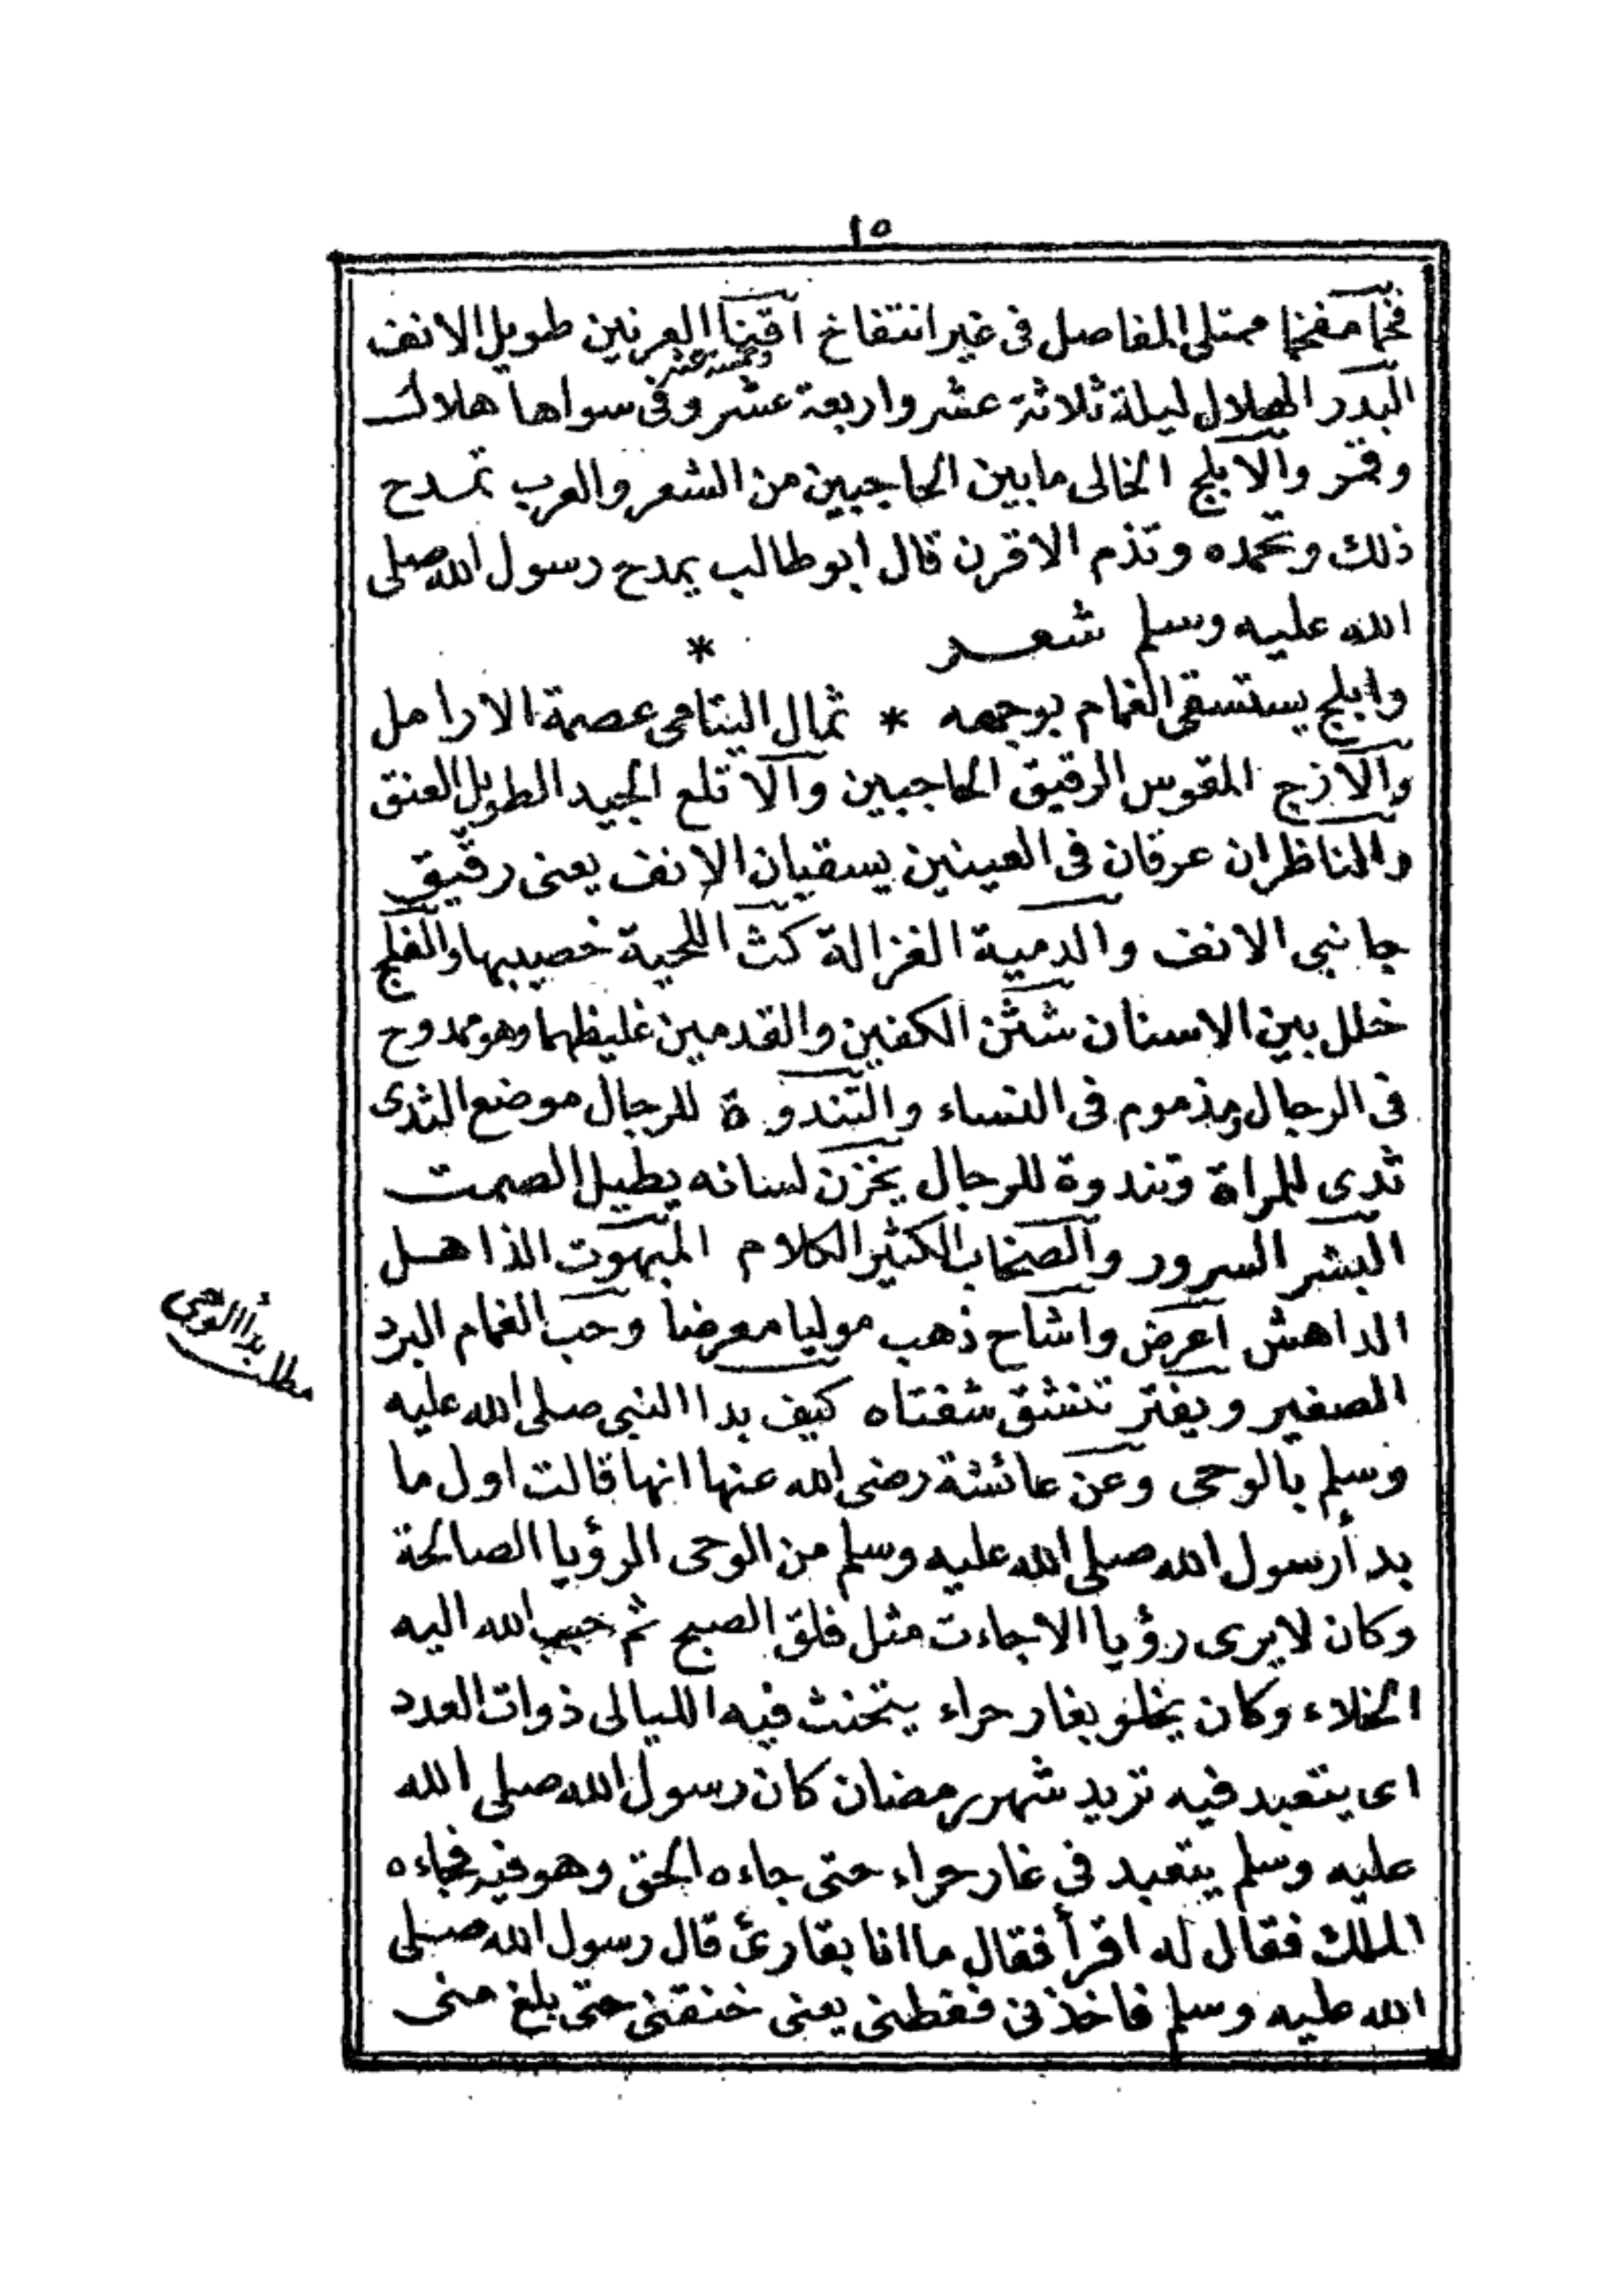 ١٥
فخما مفخما ممتلى المفاصل فى غير انتفاخ اقينا العرنين طويل الانف
البدر الهلال ليلة ثلاثة عشر واربعة عشر وخمسة عشر وفى سواها هلال
وقمر والابلج الخالى مابين الحاجبين من الشعر والعرب تمدح
ذلك وتحمده وتذم الاقرن قال ابو طالب يمدح رسول الله صلى
الله عليه وسلم شعر *
وابلج يستسقى الغمام بوجهه * ثمال اليتامى عصمة الارامل
والازج المقوس الرقيق الحاجبين والاتلع الجيد الطويل العنق
والناظران عرقان فى العينين يسقيان الانف يعنى رقيق
جانبى الانف والدمية الغزالة كث اللحية خصيبها والفلج
خلل بين الاسنان شثن الكفين والقدمين غليظهما وهو ممدوح
فى الرجال ومذموم فى النساء والتندوة للرجال موضع الثدى
ثدى للمراة وتندوة للرجال يخزن لسانه يطيل الصمت
البشر السرور والصخاب الكثير الكلام المبهوت الذاهل
الداهش اعرض واشاح ذهب موليا معرضا وحب الغمام البرد
الصغير ويفتر تنشق شفتاه كيف بدا النبى صلى الله عليه
مطلب بدأ الوحى
وسلم بالوحى وعن عائشة رضى الله عنها انها قالت اول ما
بدأ رسول الله صلى الله عليه وسلم من الوحى الرؤيا الصالحة
وكان لا يرى رؤيا الا جاءت مثل فلق الصبح ثم حبب الله اليه
الخلاء وكان يخلو بغار حراء يتحنث فيه الليالى ذوات العدد
اى يتعبد فيه تريد شهر رمضان كان رسول الله صلى الله
عليه وسلم يتعبد فى غار حراء حتى جاءه الحق وهو فيه فجاءه
الملك فقال له اقرأ فقال ما انا بقارئ قال رسول الله صلى
الله عليه وسلم فاخذنى فغطنى يعنى خنقنى حتى بلغ منى